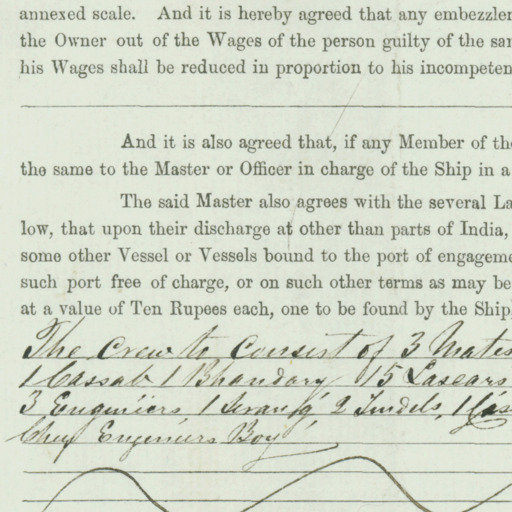 annexed scale. And it is hereby agreed that any embezzlem
the Owner out of the Wages of the person guilty of the sam
his Wages shall be reduced in proportion to his incompeten
And it is also agreed that, if any Member of the
the same to the Master or Officer in charge of the Ship in a
The said Master also agrees with the several La
low, that upon their discharge at other than parts of India,
some other Vessel or Vessels bound to the port of engageme
such port free of charge, or on such other terms as may be
at a value of Ten Rupees each, one to be found by the Ship
The Crew to Consist of 3 Mates
1 Cassab 1 Bhandary 15 Lascars
3 Engeniers, 1 Serang 2 Tindels, 1 Cas
Chief Engeniers Boy